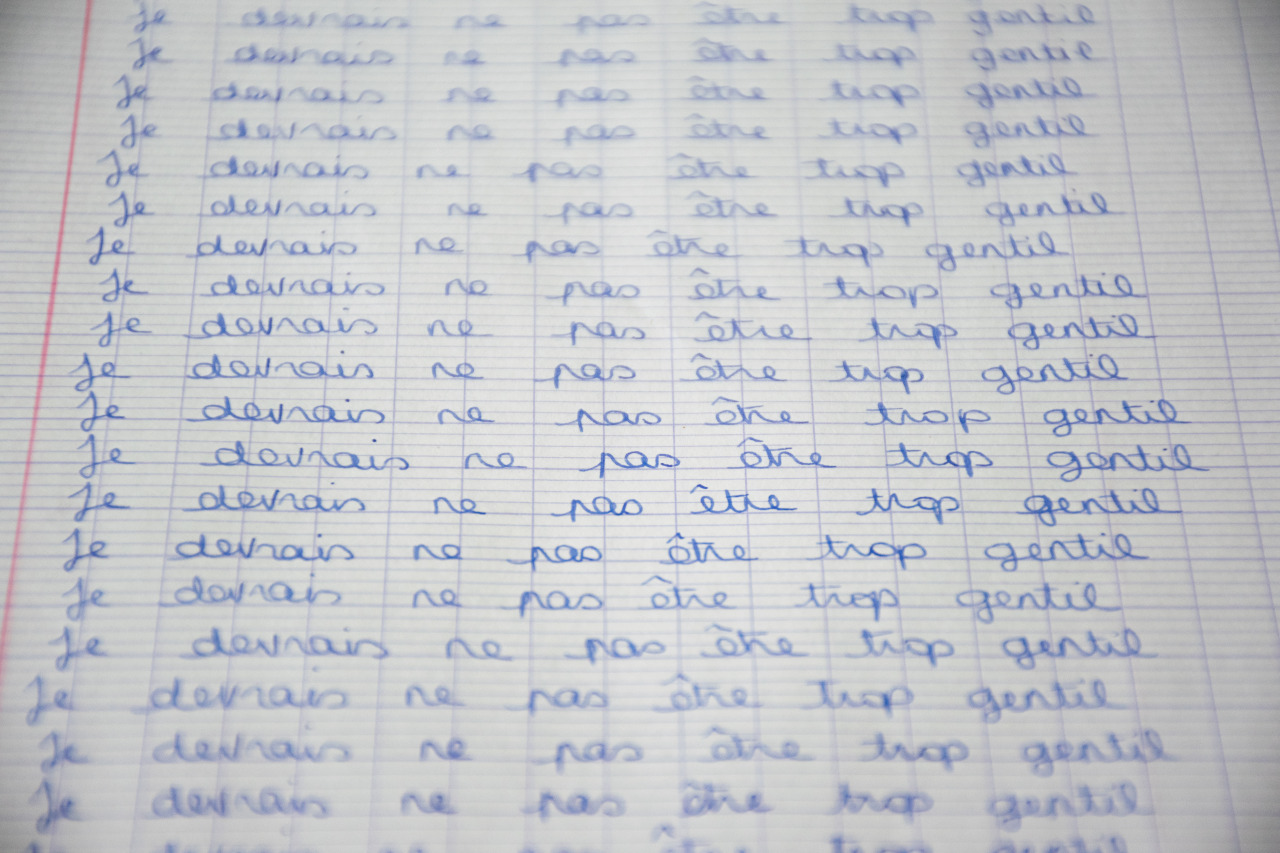 Je devrais ne pas être trop gentil
Je devrais ne pas être trop gentil
Je devrais ne pas être trop gentil
Je devrais ne pas être trop gentil
Je devrais ne pas être trop gentil
Je devrais ne pas être trop gentil
Je devrais ne pas être trop gentil
Je devrais ne pas être trop gentil
Je devrais ne pas être trop gentil
Je devrais ne pas être trop gentil
Je devrais ne pas être trop gentil
Je devrais ne pas être trop gentil
Je devrais ne pas être trop gentil
Je devrais ne pas être trop gentil
Je devrais ne pas être trop gentil
Je devrais ne pas être trop gentil
Je devrais ne pas être trop gentil
Je devrais ne pas être trop gentil
Je devrais ne pas être trop gentil